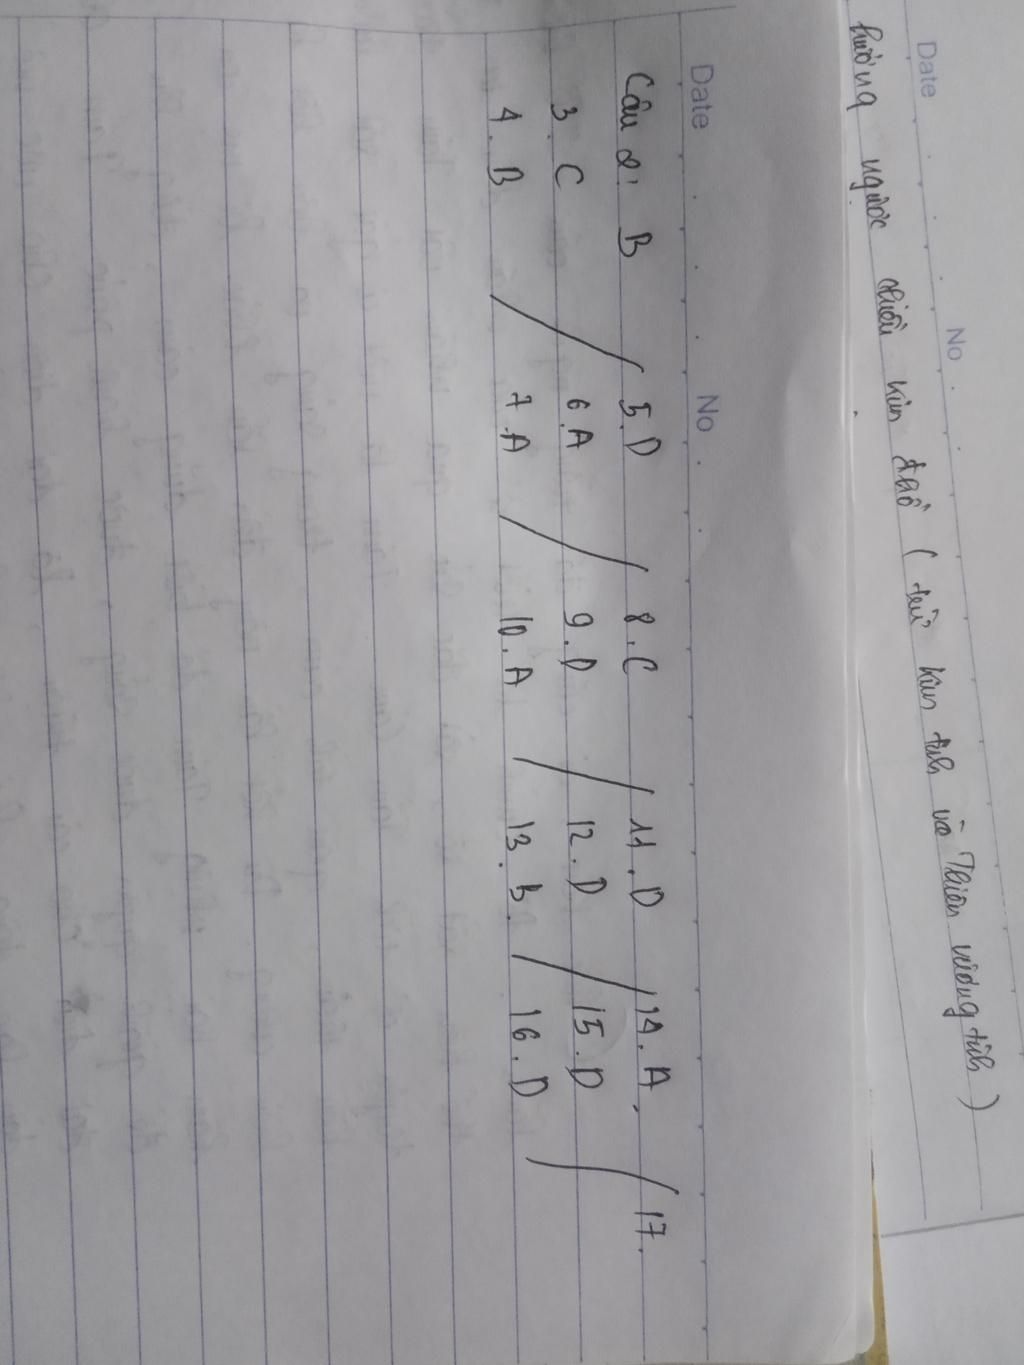 Date No
hướng ngược chiều kim đồ (trừ Kim tinh và Thiên vương tinh)
Date No
Câu 2: B / 5.D / 8.C / 11.D / 14.A / 17.
3. C 6.A 9.D 12.D 15.D
4. B 7.A 10.A 13.B 16.D